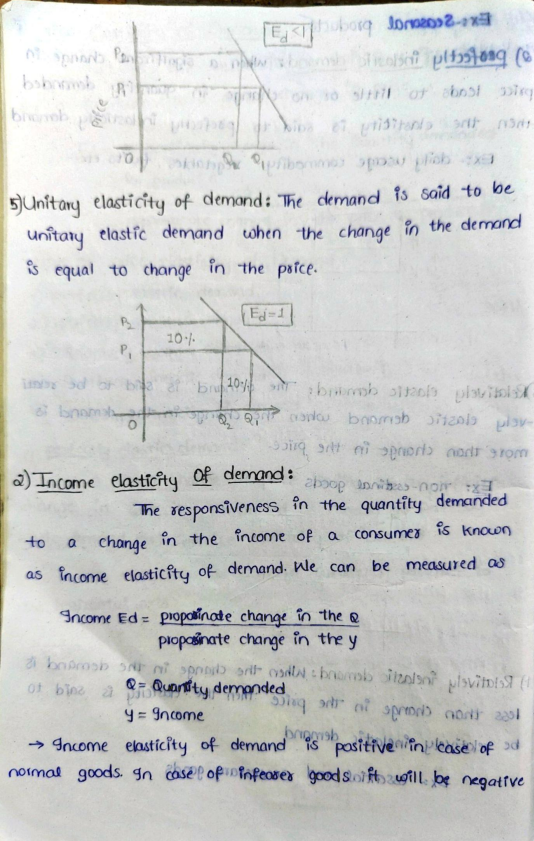 Ed<1
P2
P1
Price
O Q2 Q1
5) Unitary elasticity of demand: The demand is said to be
unitary elastic demand when the change in the demand
is equal to change in the price.
Ed=1
P2
10%
P1
10%
O Q2 Q1
2) Income elasticity Of demand:
The responsiveness in the quantity demanded
to a change in the income of a consumer is known
as income elasticity of demand. We can be measured as
Income Ed = proposinate change in the Q
proposinate change in the y
Q = Quantity demanded
y = Income
→ Income elasticity of demand is positive in case of
normal goods. In case of infearer goods it will be negative